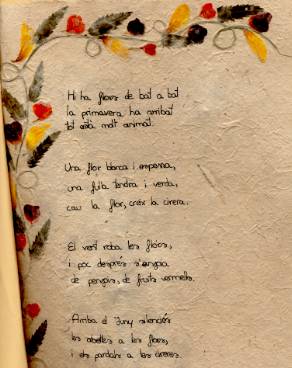 Hi ha flors de bat a bat
la primavera ha arribat
tot està molt animat.
Una flor blanca i empesna,
una fulla tendra i verda,
cau la flor, creix la cirera.
El vent roba les flors,
i poc després s'engega
de penjois, de fruits vermells.
Arriba el Juny silenciós
les abelles a les flors,
i els pardals a les cireres.